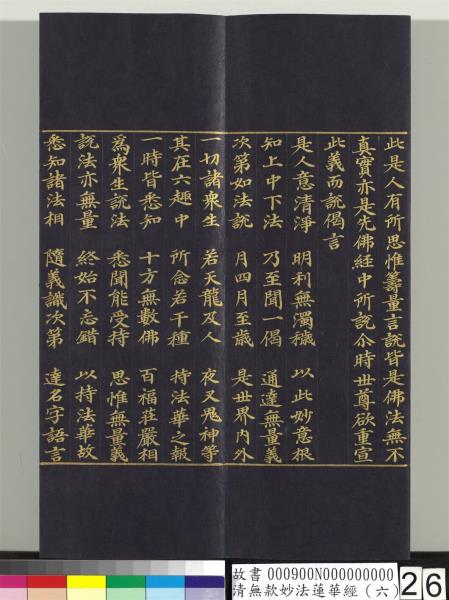 此是人有所思惟籌量言說皆是佛法無不
真實亦是先佛經中所說尒時世尊欲重宣
此義而說偈言
是人意清淨　明利無濁穢　以此妙意根
知上中下法　乃至聞一偈　通達無量義
次第如法說　月四月至歲　是世界內外
一切諸衆生　若天龍及人　夜叉鬼神等
其在六趣中　所念若干種　持法華之報
一時皆悉知　十方無數佛　百福莊嚴相
爲衆生說法　悉聞能受持　思惟無量義
說法亦無量　終始不忘錯　以持法華故
悉知諸法相　隨義識次第　達名字語言
故書 000900N000000000
清無款妙法蓮華經（六）
26